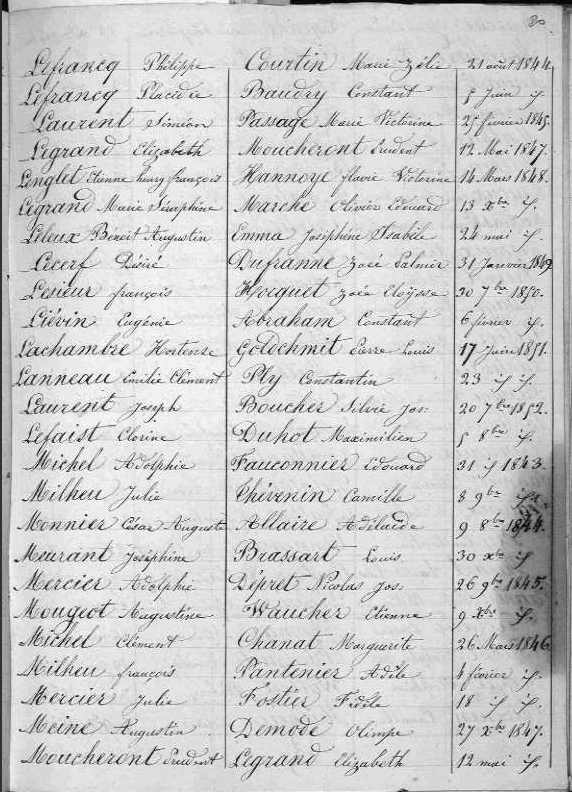 80
Lefrancq Philippe Courtin Marie Zélie 21 août 1844.
Lefrancq Placidie Baudry Constant 5 Juin id.
Laurent Siméon Passage Marie Victorine 25 février 1845.
Legrand Elizabeth Moucheront Prudent 12 Mai 1847.
Linglet Etienne henry françois Hannoye flavie Victorine 14 Mars 1848.
Legrand Marie Séraphine Marche Olivier Edouard 13 Xbre id.
Leleux Benoit Augustin Emma Joséphine Isabèle 24 mai id.
Lecerf Désiré Dufranne Zoé Palmir 31 Janvier 1849
Lesieur françois Hocquet Zoé 30 7bre 1850.
Liévin Eugénie Abraham Constant 6 février id.
Lachambre Hortense Goldchmit Pierre Louis 17 Juin 1851.
Lanneau Emilie Clément Ply Constantin 23 id id.
Laurent Joseph Boucher Silvie Jos: 20 7bre 1852.
Lefaist Clorine Duhot Maximilien 5 8bre id.
Michel Adolphie Fauconnier Edouard 31 id 1843.
Milheu Julie Thévenin Camille 8 9bre id.
Monnier César August Allaire Adélaïde 9 8bre 1844.
Meurant Joséphine Brassart Louis 30 Xbre id
Mercier Adolphie Dépret Nicolas Jos: 26 9bre 1845.
Mougeot Augustine Waucher Etienne 9 Xbre id.
Michel Clément Chanat Marguerite 26 Mars 1846.
Milheu françois Pantenier Adèle 4 février id.
Mercier Julie Fostier Fidèle 18 id id.
Meine Augustin Demode Olimpe 27 Xbre 1847.
Moucheront Prudent Legrand Elizabeth 12 mai id.